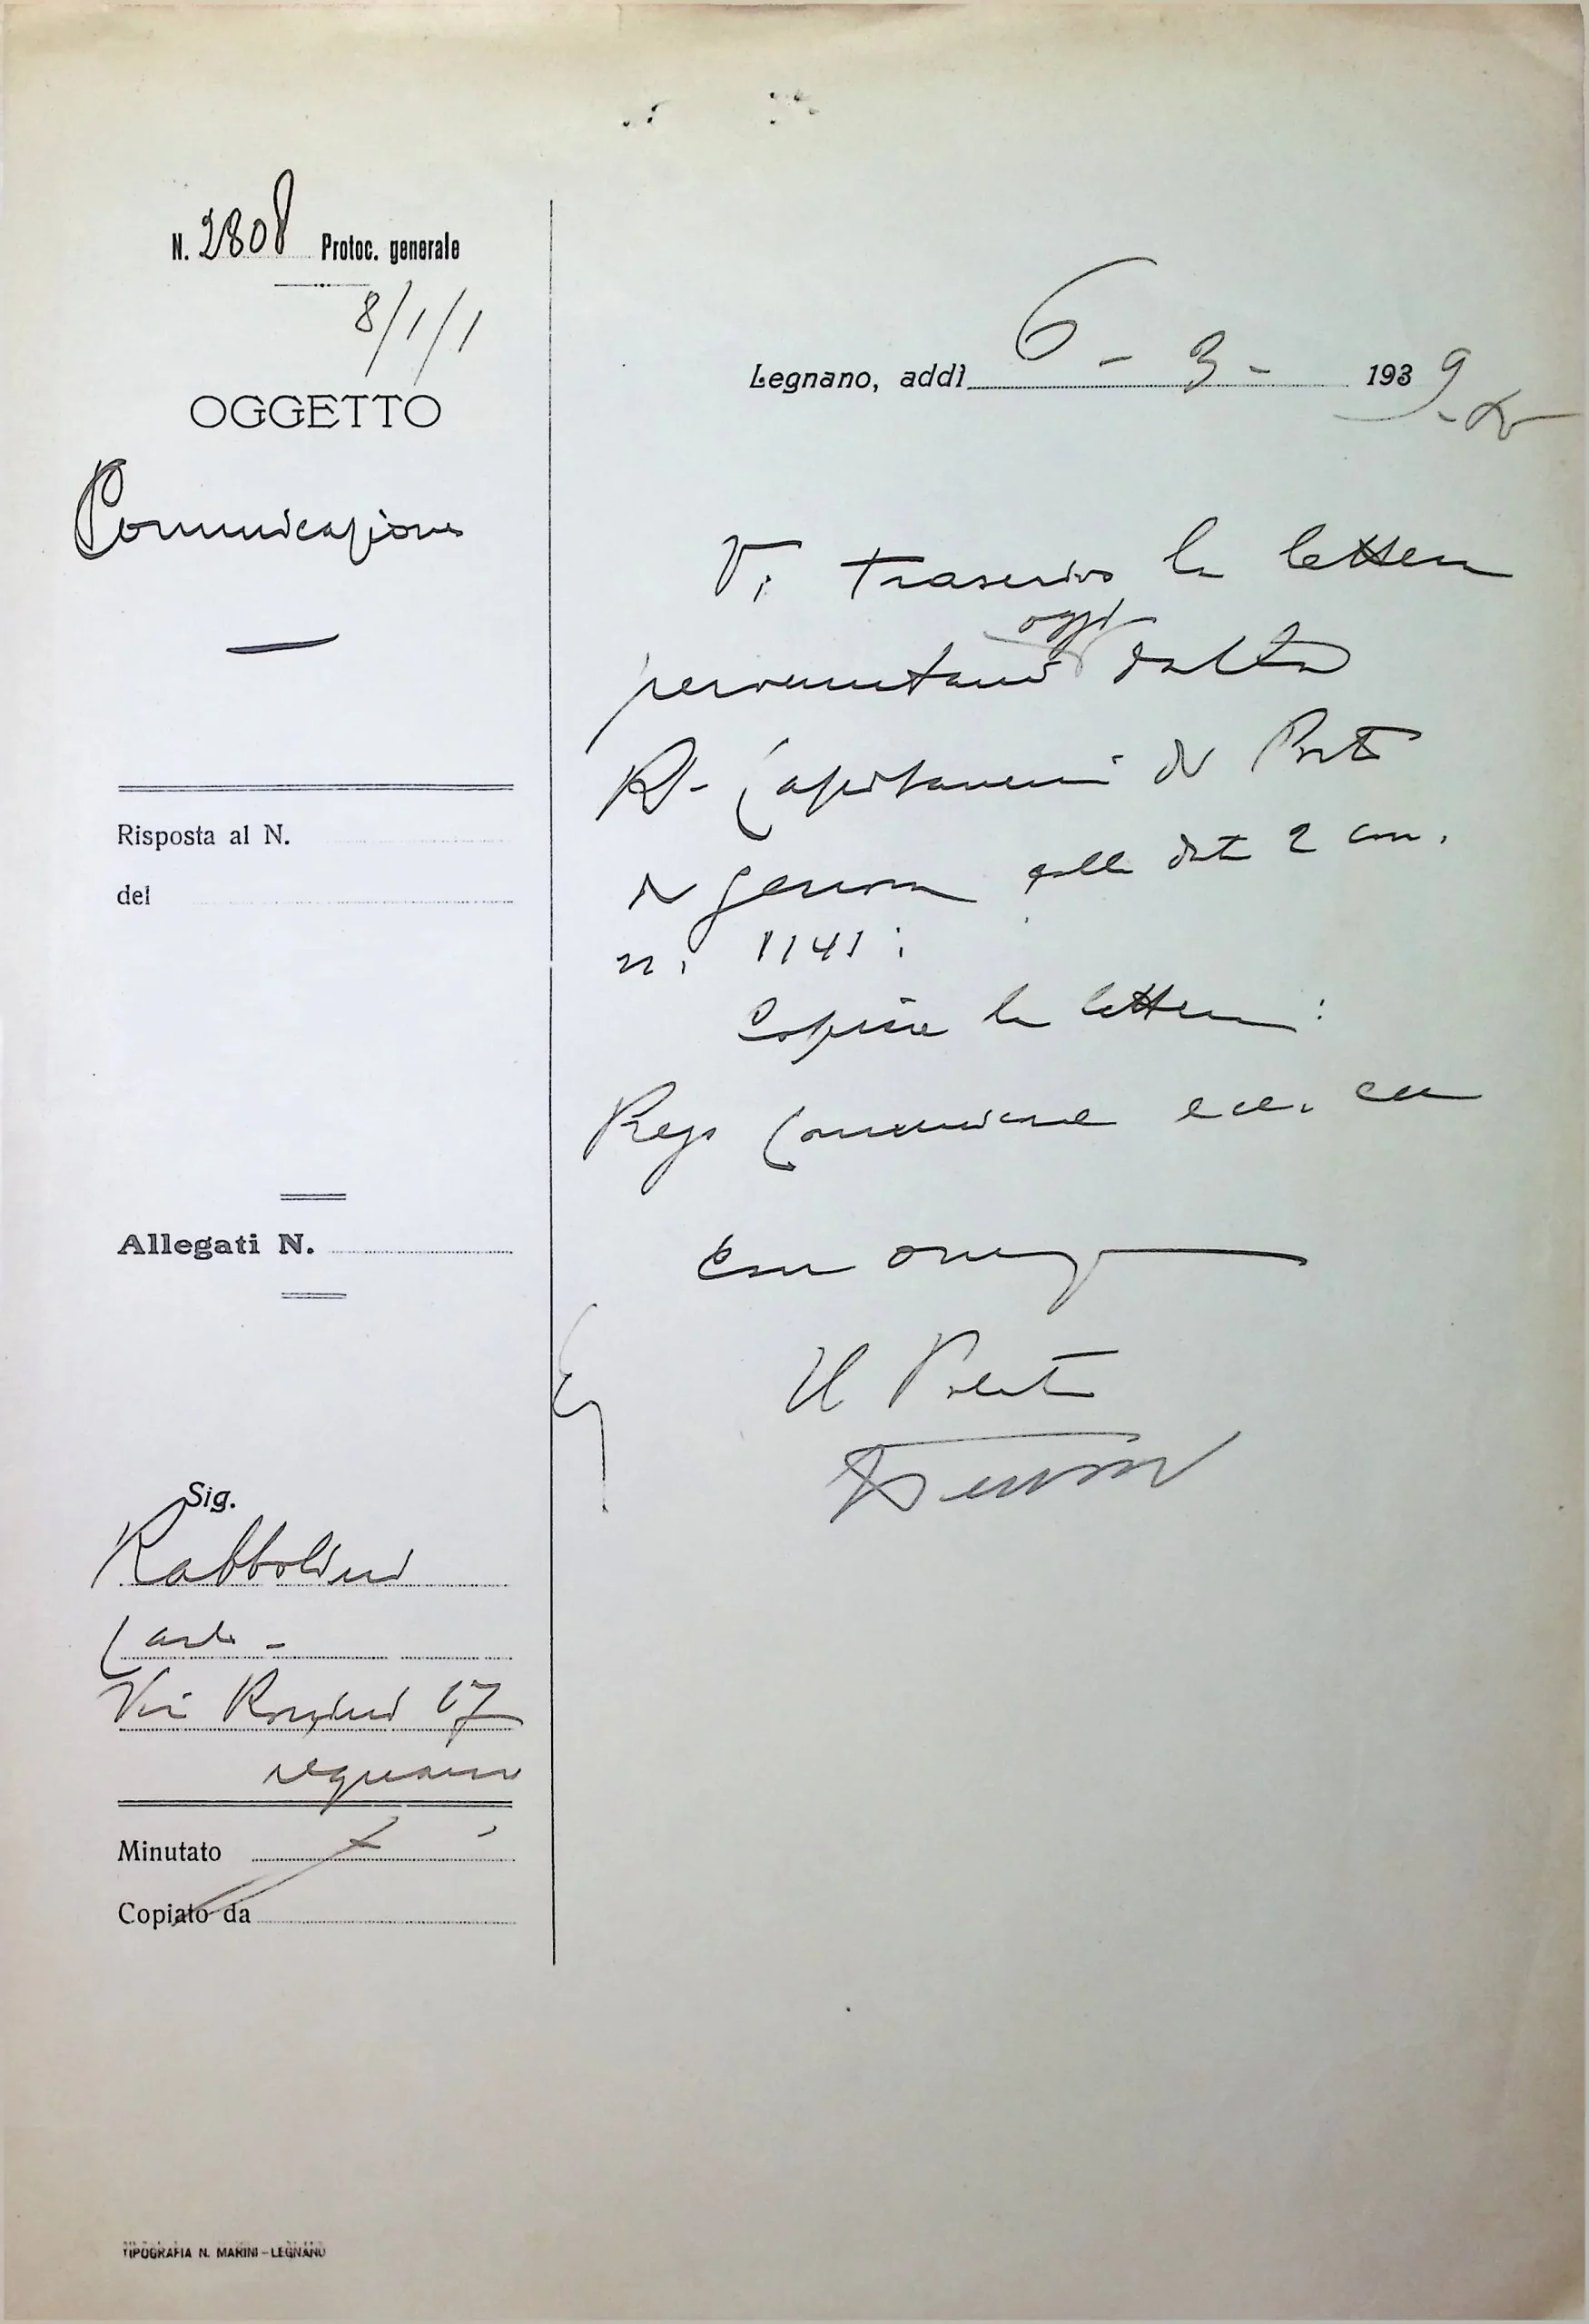 N. 2808 Protoc. generale
8/1/1
OGGETTO
Comunicazione
Risposta al N.
del
Allegati N.
Sig.
Rabbolini
Carlo -
Via Rossini 17
Legnano
Minutato
Copiato da
Legnano, addì 6 - 3 - 1939
Vi trascrivo la lettera
oggi
pervenutami dalla
R. Capitaneria di Porto
di Genova colla data 2 corr.
n. 1141:
Copiare la lettera:
Prego comunicare ecc. ecc
Con
Il
TIPOGRAFIA N. MARINI - LEGNANO